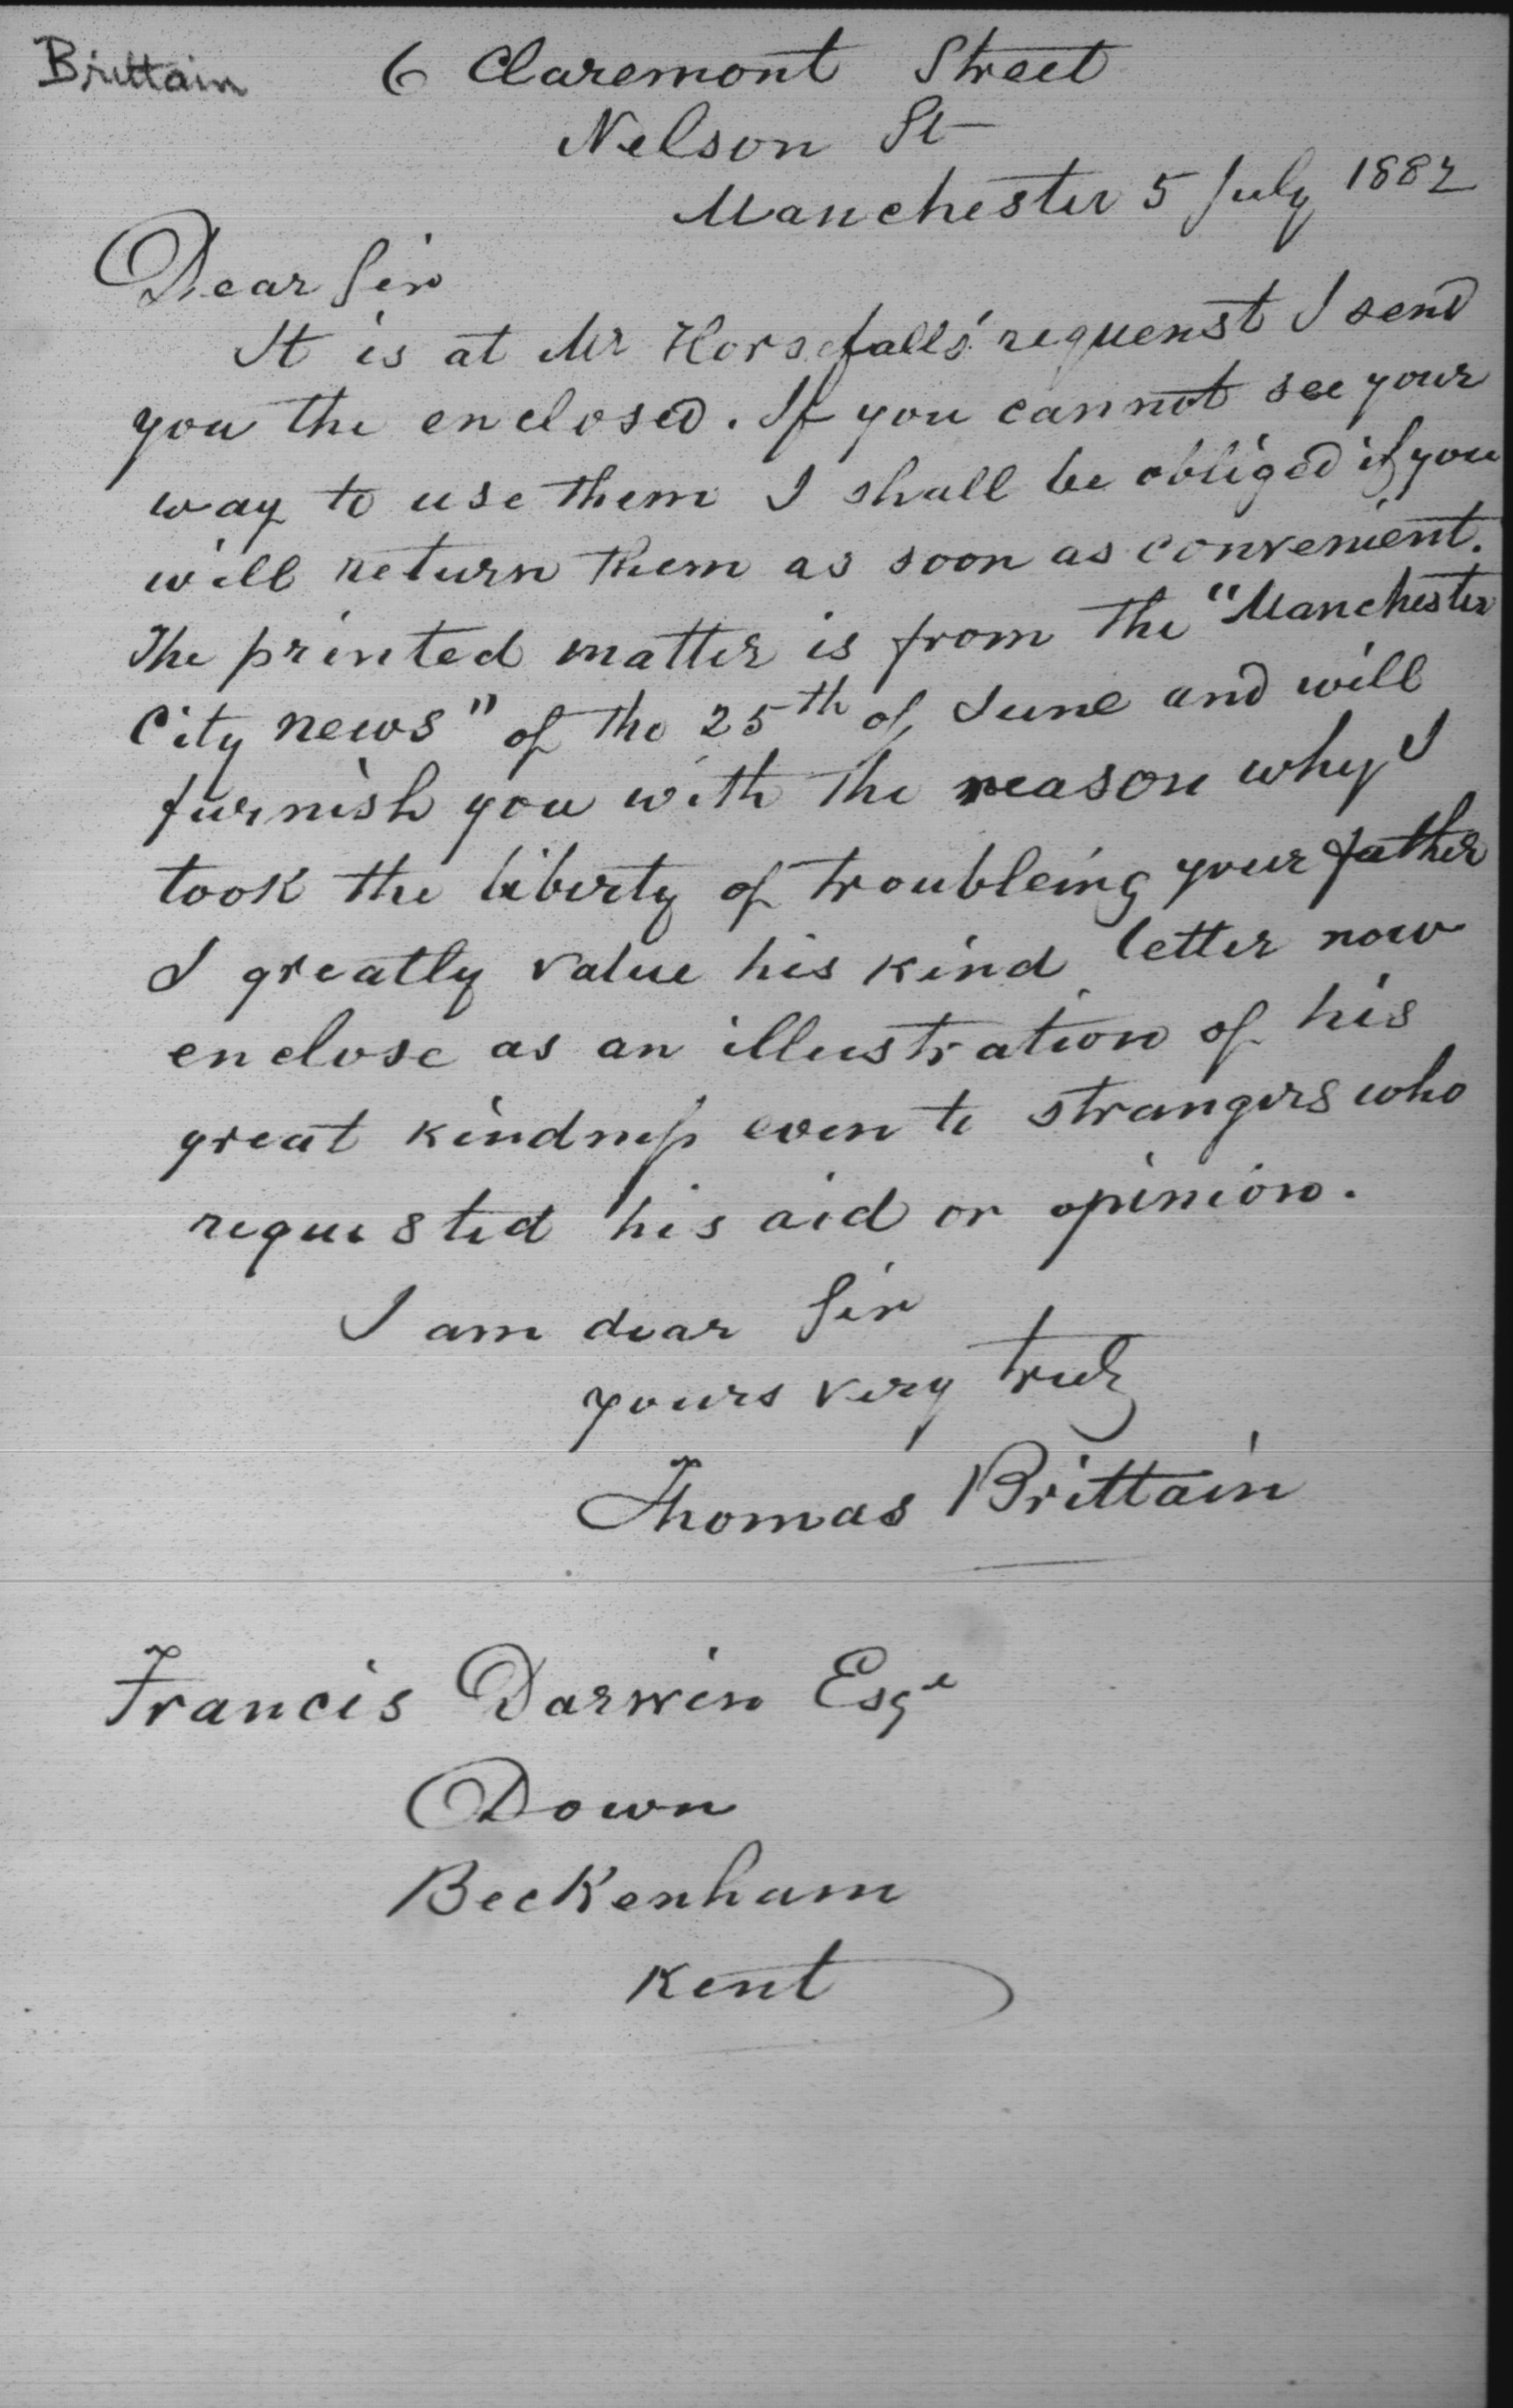 Brittain
6 Claremont Street
Nelson St
Manchester 5 July 1882
Dear Sir
It is at Mr Horsefalls' requenst I send
you the enclosed. If you cannot see your
way to use them I shall be obliged if you
will return them as soon as convenient.
The printed matter is from the "Manchester
City news" of the 25th of June and will
furnish you with the reason why I
took the liberty of troubleing your father
I greatly value his kind letter now
enclose as an illustration of his
great kindness even to strangers who
requested his aid or opinion.
I am dear Sir
yours very truly
Thomas Brittain
Francis Darwin Esqe
Down
Beckenham
Kent